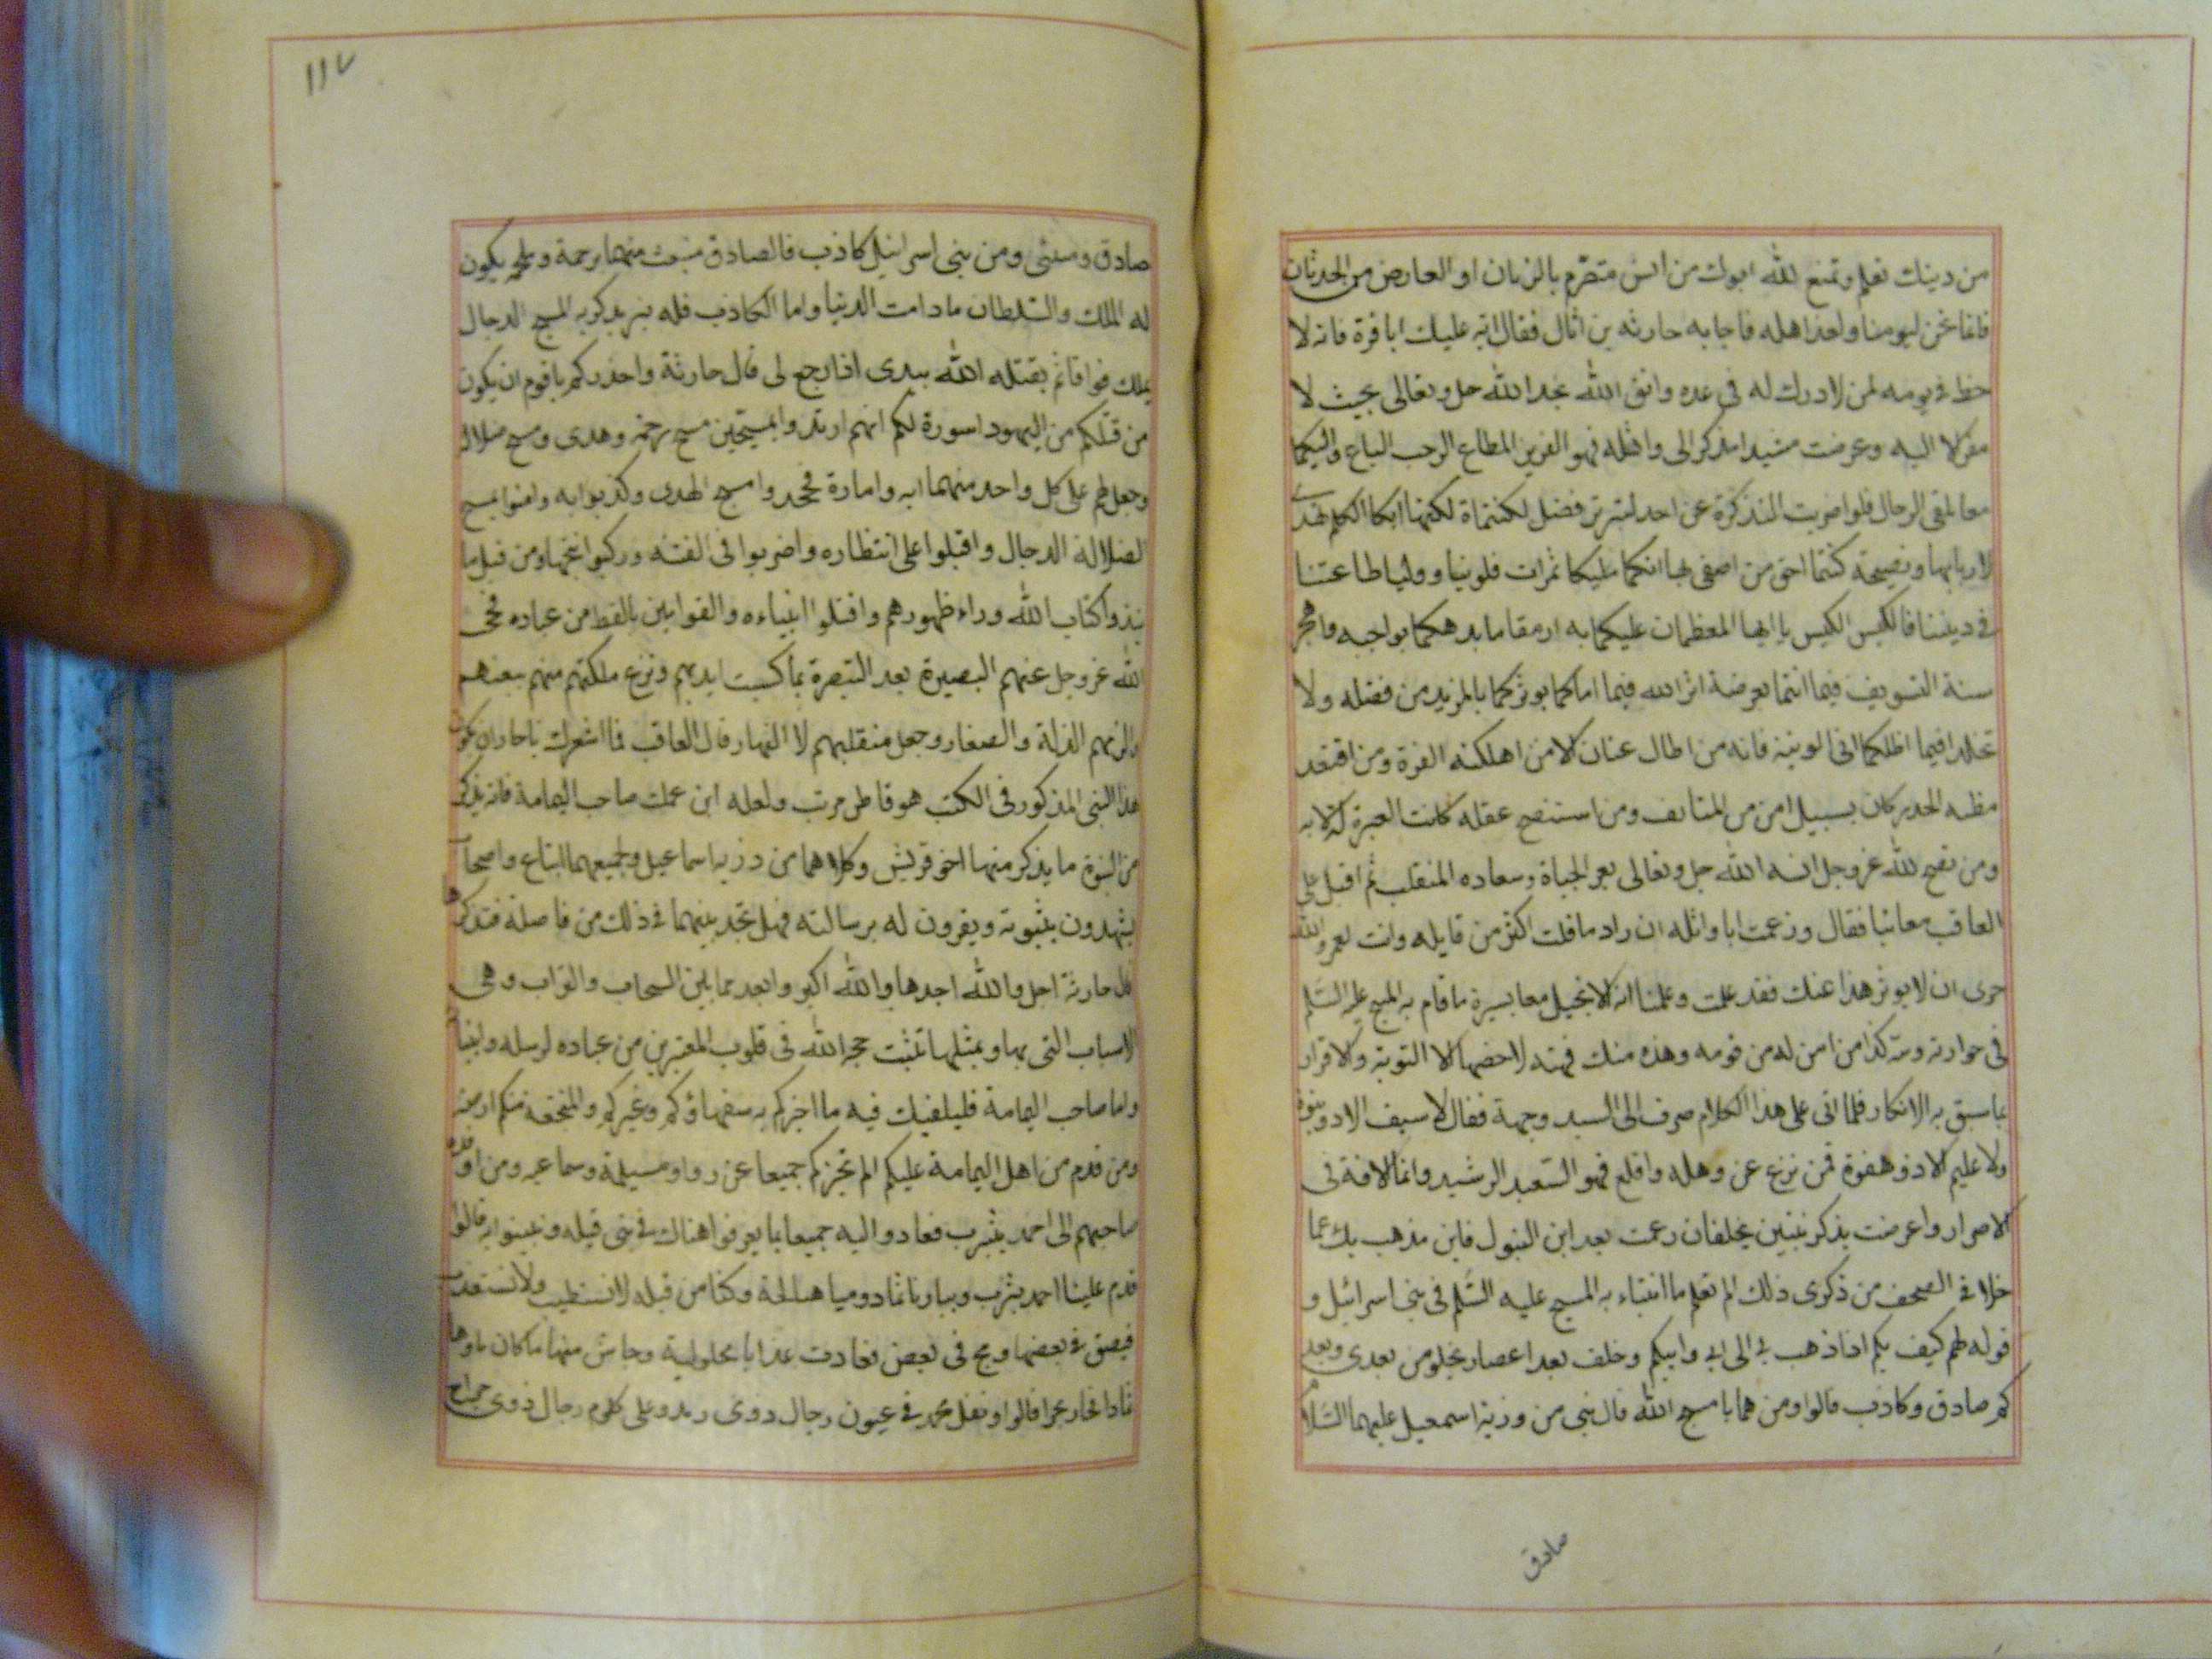 من دينك تعلم وتمنع لله ابوك من انس متصرم بالزمان او العارض من الحدثان
فانما نحن ليومنا ولغد اهله فاجابه حارثه بن اثال فقال ايه عليك ابا قرة فانه لا
حظ في يومه لمن لا درك له في غده واتق الله تجد الله جل وتعالى بحيث لا
مفزع الا اليه وعرضت مشيدا بذكر ابى واثله فهو العزيز المطاع الرحب الباع واليكما
معا ملقى الرحال فلو اضربت التذكرة عن احد لتبريز فضل لكنتماه لكنها ابكار الكلم تهدى
لاربابها ونصيحة كنتما احق من اصغى بها انكما مليكا ثمرات قلوبنا ووليا طاعتنا
في ديننا فالكيس الكيس يا ايها المعظمان عليكما به ارمقا ما بدهكما بواجبه واهجرا
سنة التسويف فيما انتما بعرضة اثرا لله فيما اماكما يوثركما بالمزيد من فضله ولا
تخلدا فيما اظلكما الى الونية فانه من اطال عنان الامن اهلكته الغرة ومن اقتعد
مطيه الحذر كان بسبيل امن من المتالف ومن استنصح عقله كانت العبرة له لا به
ومن نصح لله عز وجل انسه الله جل وتعالى بعز الحياة وسعاده المنقلب ثم اقبل على
العاقب معاتبا فقال وزعمت ابا واثله ان راد ما قلت اكثر من قايله وانت لعمر والله
حرى ان لا يوثر هذا عنك فقد علمت وعلمنا امة الانجيل معا بسيرة ما قام به المسيح عليه السلم
في حواريه ومن امن له من قومه وهذه منك فهة لا يرحضها الا التوبة والاقرار
بما سبق به الانكار فلما اتى على هذا الكلام صرف الى السيد وجهه فقال لا سيف الا ذو نبوة
ولا عليم الا ذو هفوة فمن نزع عن وهله واقلع فهو السعيد الرشيد وانما الافة في
الاصرار واعرضت بذكر نبيين يخلقان زعمت بعد ابن البتول فاين مذهب بك عما
خلا في الصحف من ذكرى ذلك الم تعلم ما انتباء به المسيح عليه السلم في بنى اسرائيل و
قوله لهم كيف بكم اذا ذهب بى الى ابى وابيكم وخلف بعد اعصار يخلو من بعدى وبعد
كم صادق وكاذب قالوا ومن هما يا مسيح الله قال نبى من ذرية اسمعيل عليهما السلام
صادق
١١٧
صادق ومتنبى ومن بنى اسرائيل كاذب فالصادق منبعث منهما برحمة وملحمة يكون
له الملك والسلطان ما دامت الدنيا واما الكاذب فله نبز يذكر به المسيح الدجال
يملك فواقا ثم يقتله الله بيدى اذا رجع لى قال حارثة واحذركم يا قوم ان يكون
من قبلكم من اليهود اسورة لكم انهم انذروا بمسيحين مسيح رحمة وهدى ومسيح ضلالة
وجعل لهم على كل واحد منهما ايه وامارة فجحدوا مسيح الهدى وكذبوا به وامنوا بمسيح
الضلالة الدجال واقبلوا على انتظاره واضربوا في الفتنه وركبوا نتجها ومن قبل ما
نبذوا كتاب الله وراء ظهورهم وقتلوا انبياءه والقوامين بالقسط من عباده فحجب
الله عز وجل عنهم البصيرة بعد التبصرة بما كسبت ايديهم ونزع ملكتهم منهم ببغيهم
والزمهم الذلة والصغار وجعل منقلبهم الى النهار قال العاقب فما اشعرك يا حار ان يكون
هذا النبى المذكور في الكتب هو قاطن يثرب ولعله ابن عمك صاحب اليمامة فانه يذكر
من النبوة ما يذكر منها اخو قريش وكلاهما من ذرية اسماعيل ولجميعهما اتباع واصحاب
يشهدون بنبوته ويقرون له برسالته فهل تجد بينهما في ذلك من فاصلة فتذكرها
قال حارثة اجل والله اجدها والله اكبر وابعد مما بين السحاب والتراب وهى
الاسباب التى بها وبمثلها تثبت حجة الله في قلوب المعتبرين من عباده لرسله وانبيائه
واما صاحب اليمامة فليكفيك فيه ما اخبركم به سفهاؤكم وغيركم والمنتجعة منكم ارضه
ومن قدم من اهل اليمامة عليكم الم يخبركم جميعا عن رواد مسيلمة وسماعيه ومن اوفده
صاحبهم الى احمد بيثرب فعادوا اليه جميعا بما يعرفوا هناك في بنى قيله وتبينوا به قالوا
قدم علينا احمد يثرب وبيارنا ثماد ومياهنا ملحة وكنا من قبله لا نستطيب ولا نستعذب
فبصق في بعضها ومج في بعض فعادت عذابا محلولية وجاش منها ما كان ماوها
ثمادا فحار بحرا قالوا وتفل محمد في عيون رجال ذوى رمد وعلى كلوم رجال ذوى جراح